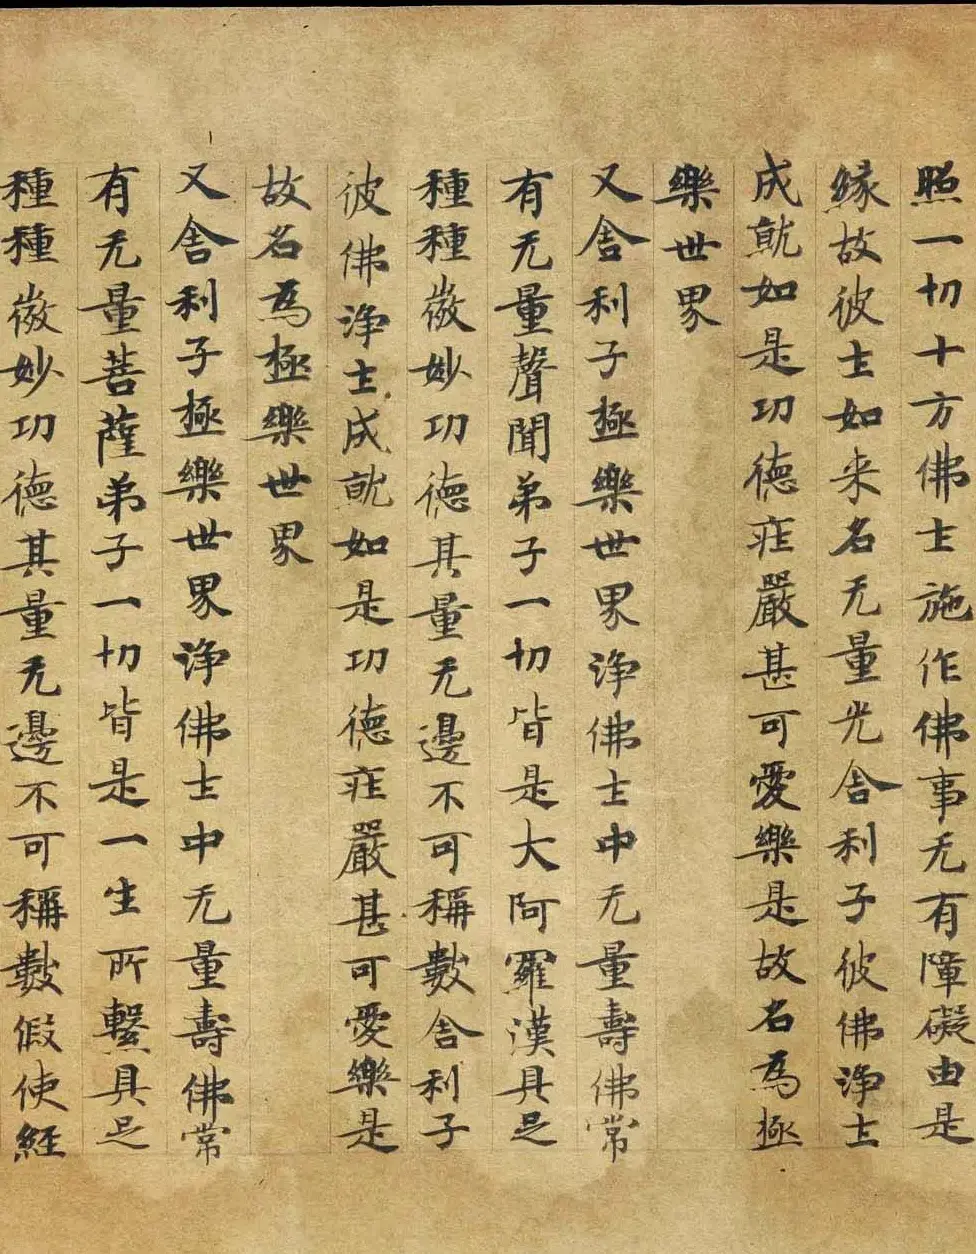 照一切十方佛土施作佛事无有障礙由是
緣故彼土如来名无量光舍利子彼佛淨土
成就如是功德疰嚴甚可愛樂是故名為極
樂世界
又舍利子極樂世界淨佛土中无量壽佛常
有无量聲聞弟子一切皆是大阿羅漢具足
種種微妙功德其量无邊不可稱數舍利子
彼佛淨土成就如是功德疰嚴甚可愛樂是
故名為極樂世界
又舍利子極樂世界淨佛土中无量壽佛常
有无量菩薩弟子一切皆是一生所繫具足
種種微妙功德其量无邊不可稱數假使經